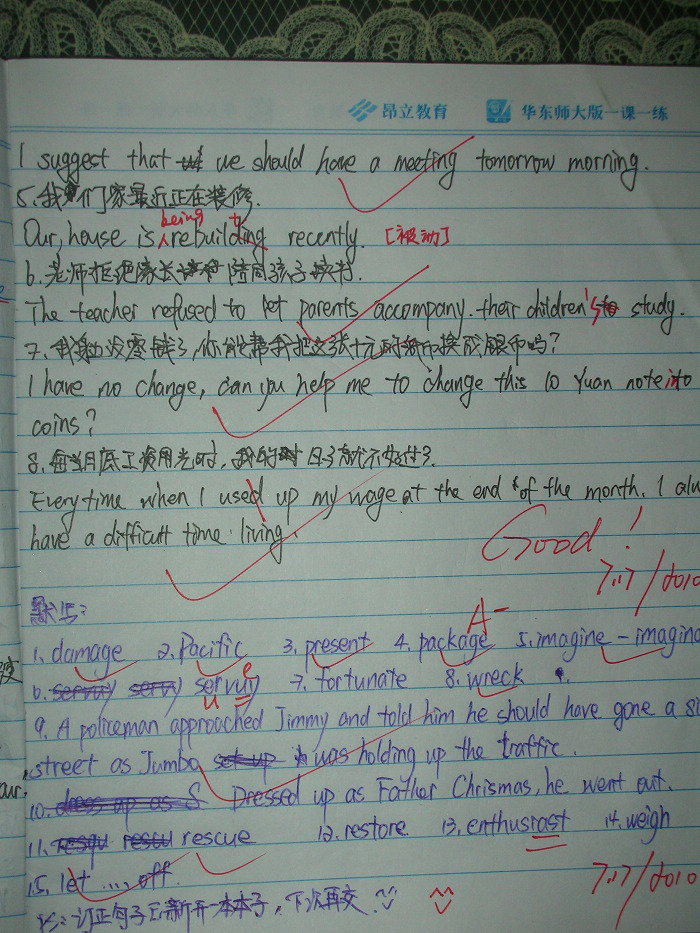 昂立教育 华东师大版一课一练
I suggest that we should have a meeting tomorrow morning.
5. 我们家最近正在装修.
being to
Our house is rebuilding recently. [被动]
6. 老师拒绝家长陪同孩子读书.
The teacher refused to let parents accompany their children's study.
7. 我没零钱了, 你能帮我把这张十元的纸币换成硬币吗?
I have no change, can you help me to change this 10 Yuan note into
coins?
8. 每当月底工资用光时, 我的日子就不好过了.
Every time when I used up my wage at the end of the month. I
have a difficult time living.
Good!
7.17/2010
默写:
A-
1. damage 2. Pacific 3. present 4. package 5. imagine -
e
6. 7. fortunate 8. wreck
u
9. A policeman approached Jimmy and told him he should have gone a
street as Jumbo was holding up the traffic.
10. Dressed up as Father Chrismas, he went out.
11. rescue 12. restore 13. enthusiast 14. weigh
15. let ... off.
7.17/2010
订正句子已新开一本本子, 下次再交.